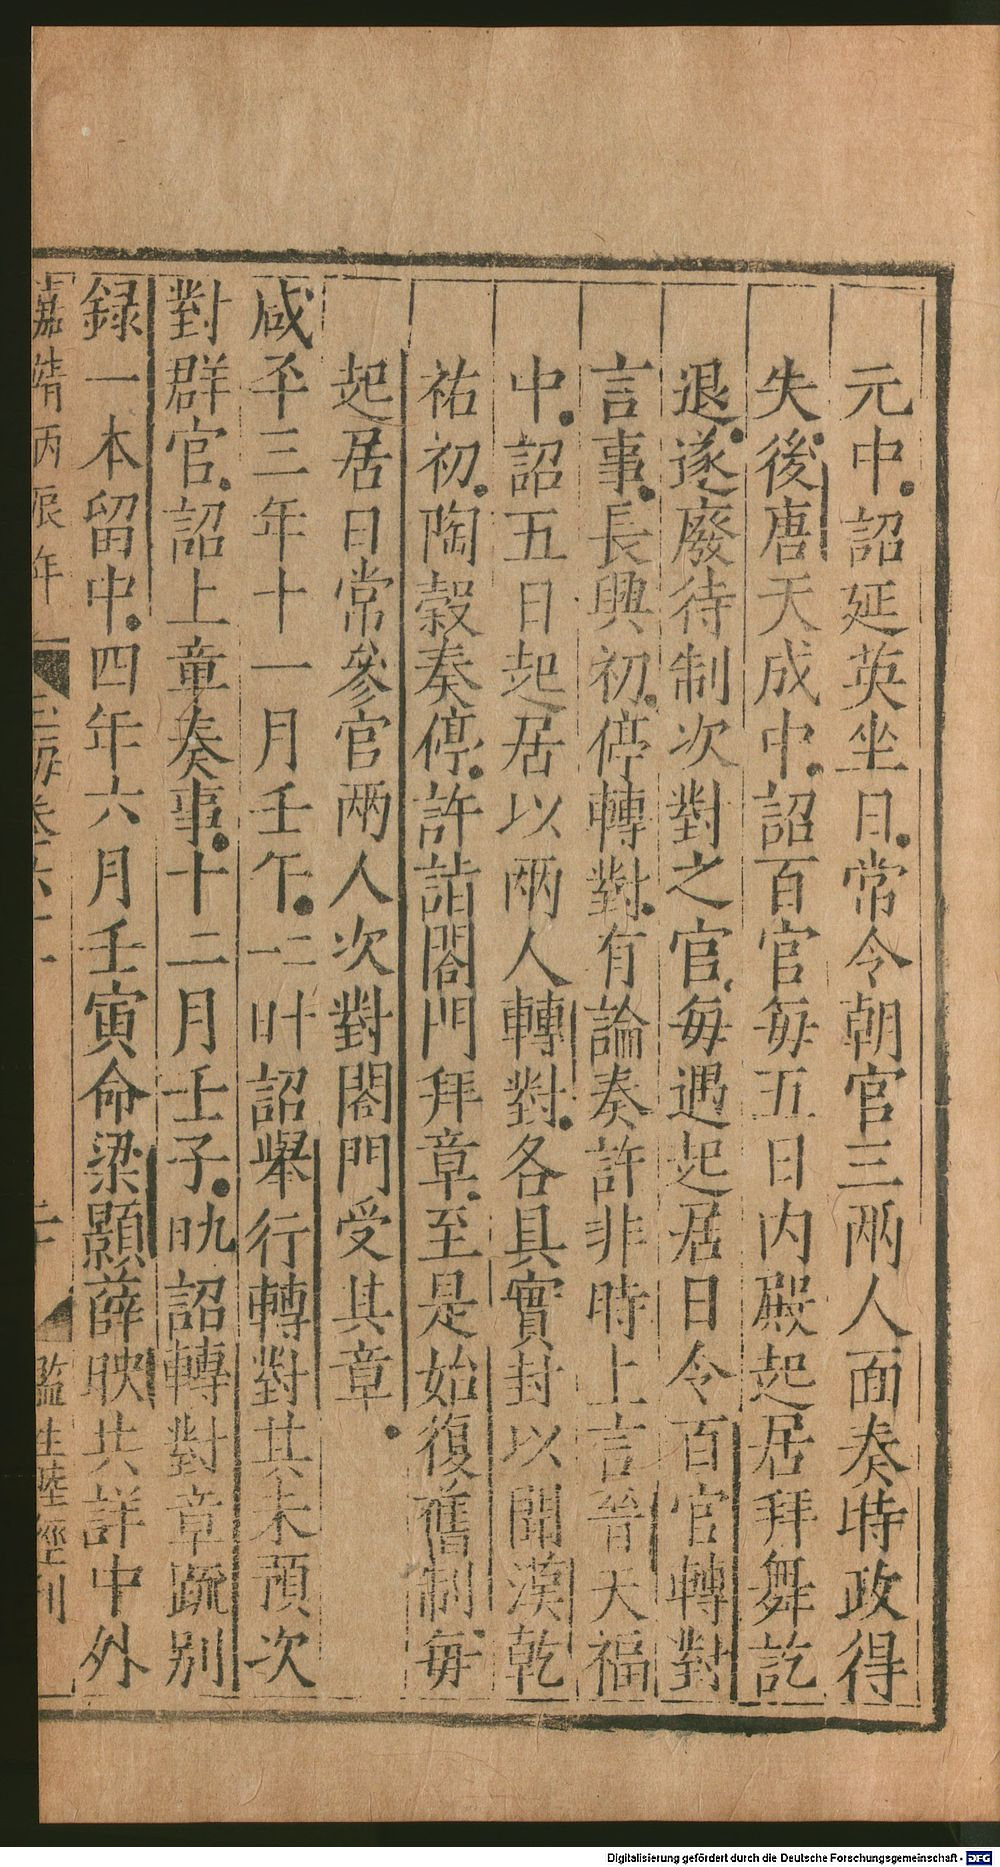 元中詔延英坐日常令朝官三兩人面奏時政得
失後唐天成中詔百官毎五日内殿起居拜舞訖
退遂廢待制次對之官毎遇起居日令百官轉對
言事長興初停轉對有論奏許非時上言晉天福
中詔五日起居以兩人轉對各具實封以聞漢乾
祐初陶穀奏停許詣閤門拜章至是始復舊制毎
起居日常參官兩人次對閤門受其章
咸平三年十一月壬午一云二十一日詔舉行轉對其未預次
對群官詔上章奏事十二月壬子九日詔轉對章疏别
録一本留中四年六月壬寅命梁顥薛映共詳中外
嘉靖丙辰年 玉海卷六十一 二十 監生陸經刊
Digitalisierung gefördert durch die Deutsche Forschungsgemeinschaft - DFG